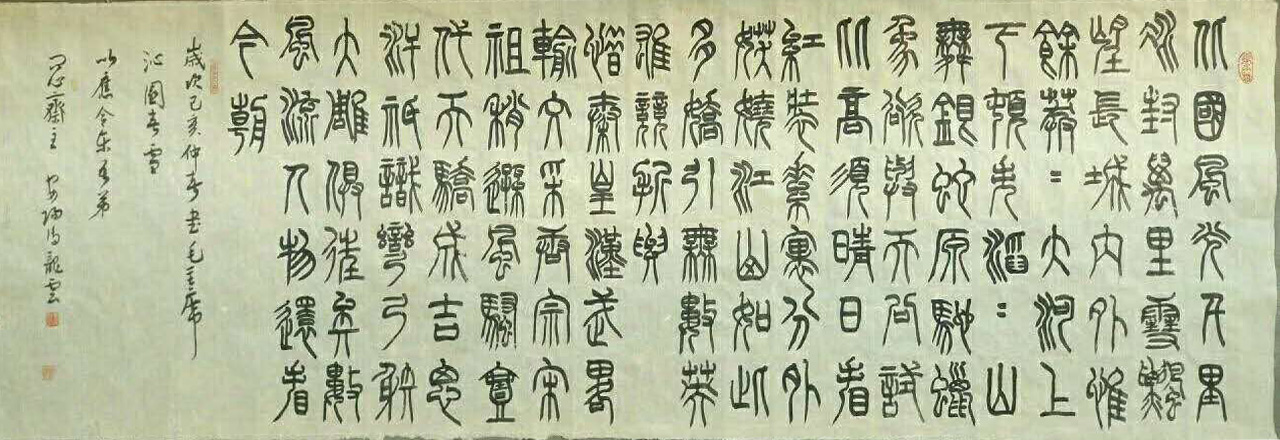 北國風光千里
冰封萬里雪飄
望長城內外惟
餘莽=大河上
下頓失滔=山
舞銀蛇原馳蠟
象欲與天公試
比高須晴日看
紅裝素裹分外
妖嬈江山如此
多嬌引無數英
雄競折腰
惜秦皇漢武略
輸文采唐宗宋
祖稍遜風騷壹
代天驕成吉思
汗祇識彎弓射
大雕俱往矣數
風流人物還看
今朝
歲次己亥仲春書毛主席
沁園春雪
以應令東吾弟
齋主 龍雲